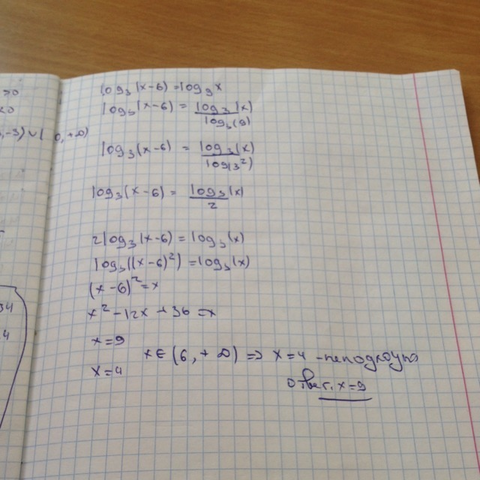 >0
<0
,-3)∪( 0,+∞)
log₃(x-6)=log₉x
log₃(x-6) = log₃(x)/log₃(9)
log₃(x-6) = log₃(x)/log(3²)
log₃(x-6) = log₃(x)/2
2log₃(x-6)=log₃(x)
log₃((x-6)²)=log₃(x)
(x-6)²=x
x²-12x+36=x
x=9
x∈(6,+∞) => x=4 -неподходит
x=4
Ответ. x=9
4